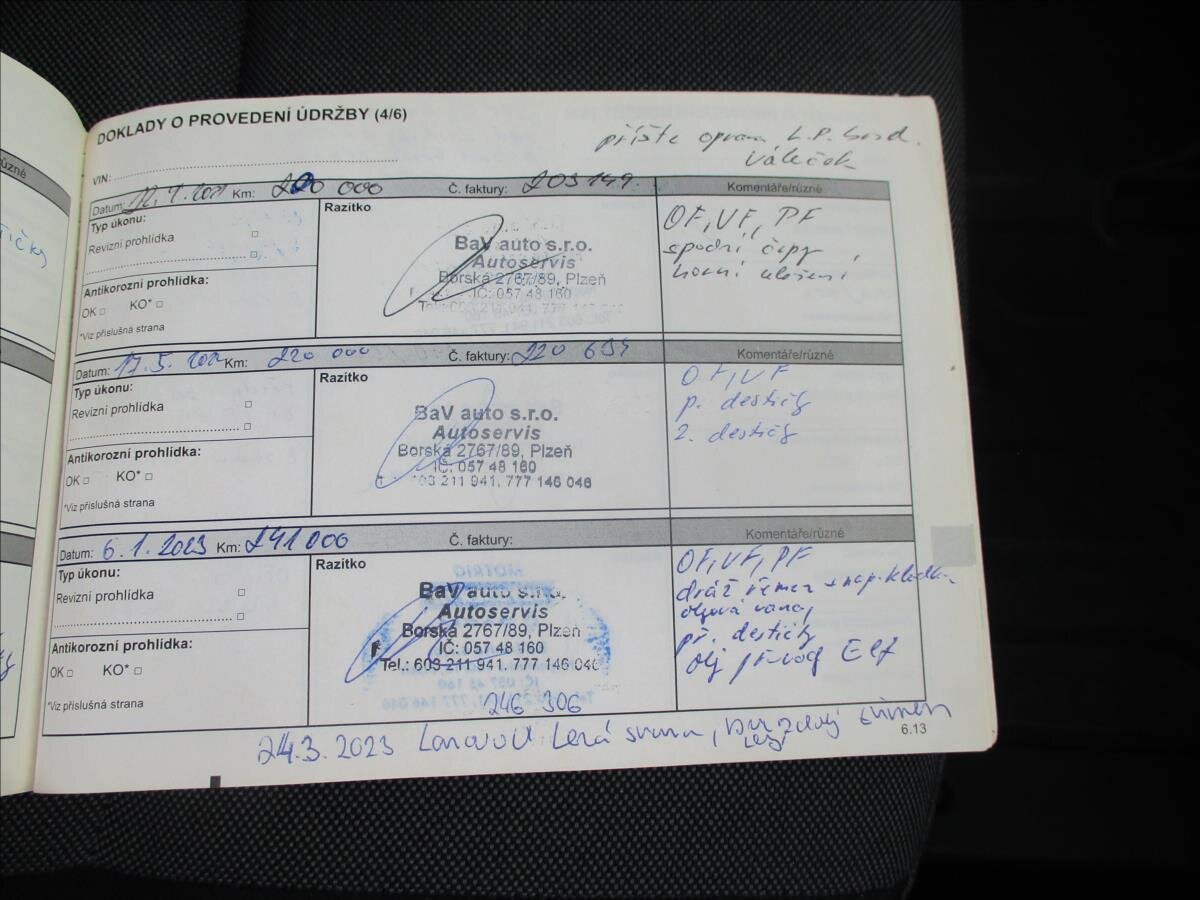 DOKLADY O PROVEDENÍ ÚDRŽBY (4/6)
příště oprava L.P. brzd.
Váleček
VIN:
Datum: Km: 000 Č. faktury: 203 149. Komentáře/různé
Typ úkonu:
Revizní prohlídka
Antikorozní prohlídka:
OK KO*
*Viz příslušná strana
Razítko
BaV auto s.r.o.
Autoservis
Borská 2767/89, Plzeň
IČ: 057 48 160
OF, VF, PF
spodní čepy,
horní uložení
Datum: 17.5. Km: 220 000 Č. faktury: 220 634 Komentáře/různé
Typ úkonu:
Revizní prohlídka
Antikorozní prohlídka:
OK KO*
*Viz příslušná strana
Razítko
BaV auto s.r.o.
Autoservis
Borská 2767/89, Plzeň
IČ: 057 48 160
603 211 941, 777 146 046
OF, VF
p. destičky
z. destičky
Datum: 6.1.2023 Km: 241 000 Č. faktury: Komentáře/různé
Typ úkonu:
Revizní prohlídka
Antikorozní prohlídka:
OK KO*
*Viz příslušná strana
Razítko
MOTRIO
BaV auto s.r.o.
Autoservis
Borská 2767/89, Plzeň
IČ: 057 48 160
Tel.: 603 211 941, 777 146 046
246 306
OF, VF, PF
dráž. řemen + nap. kladka
olejová vana,
př. destičky
olej převod Elf
24.3.2023 Lanovod Levá strana, brzdový třmen
6.13